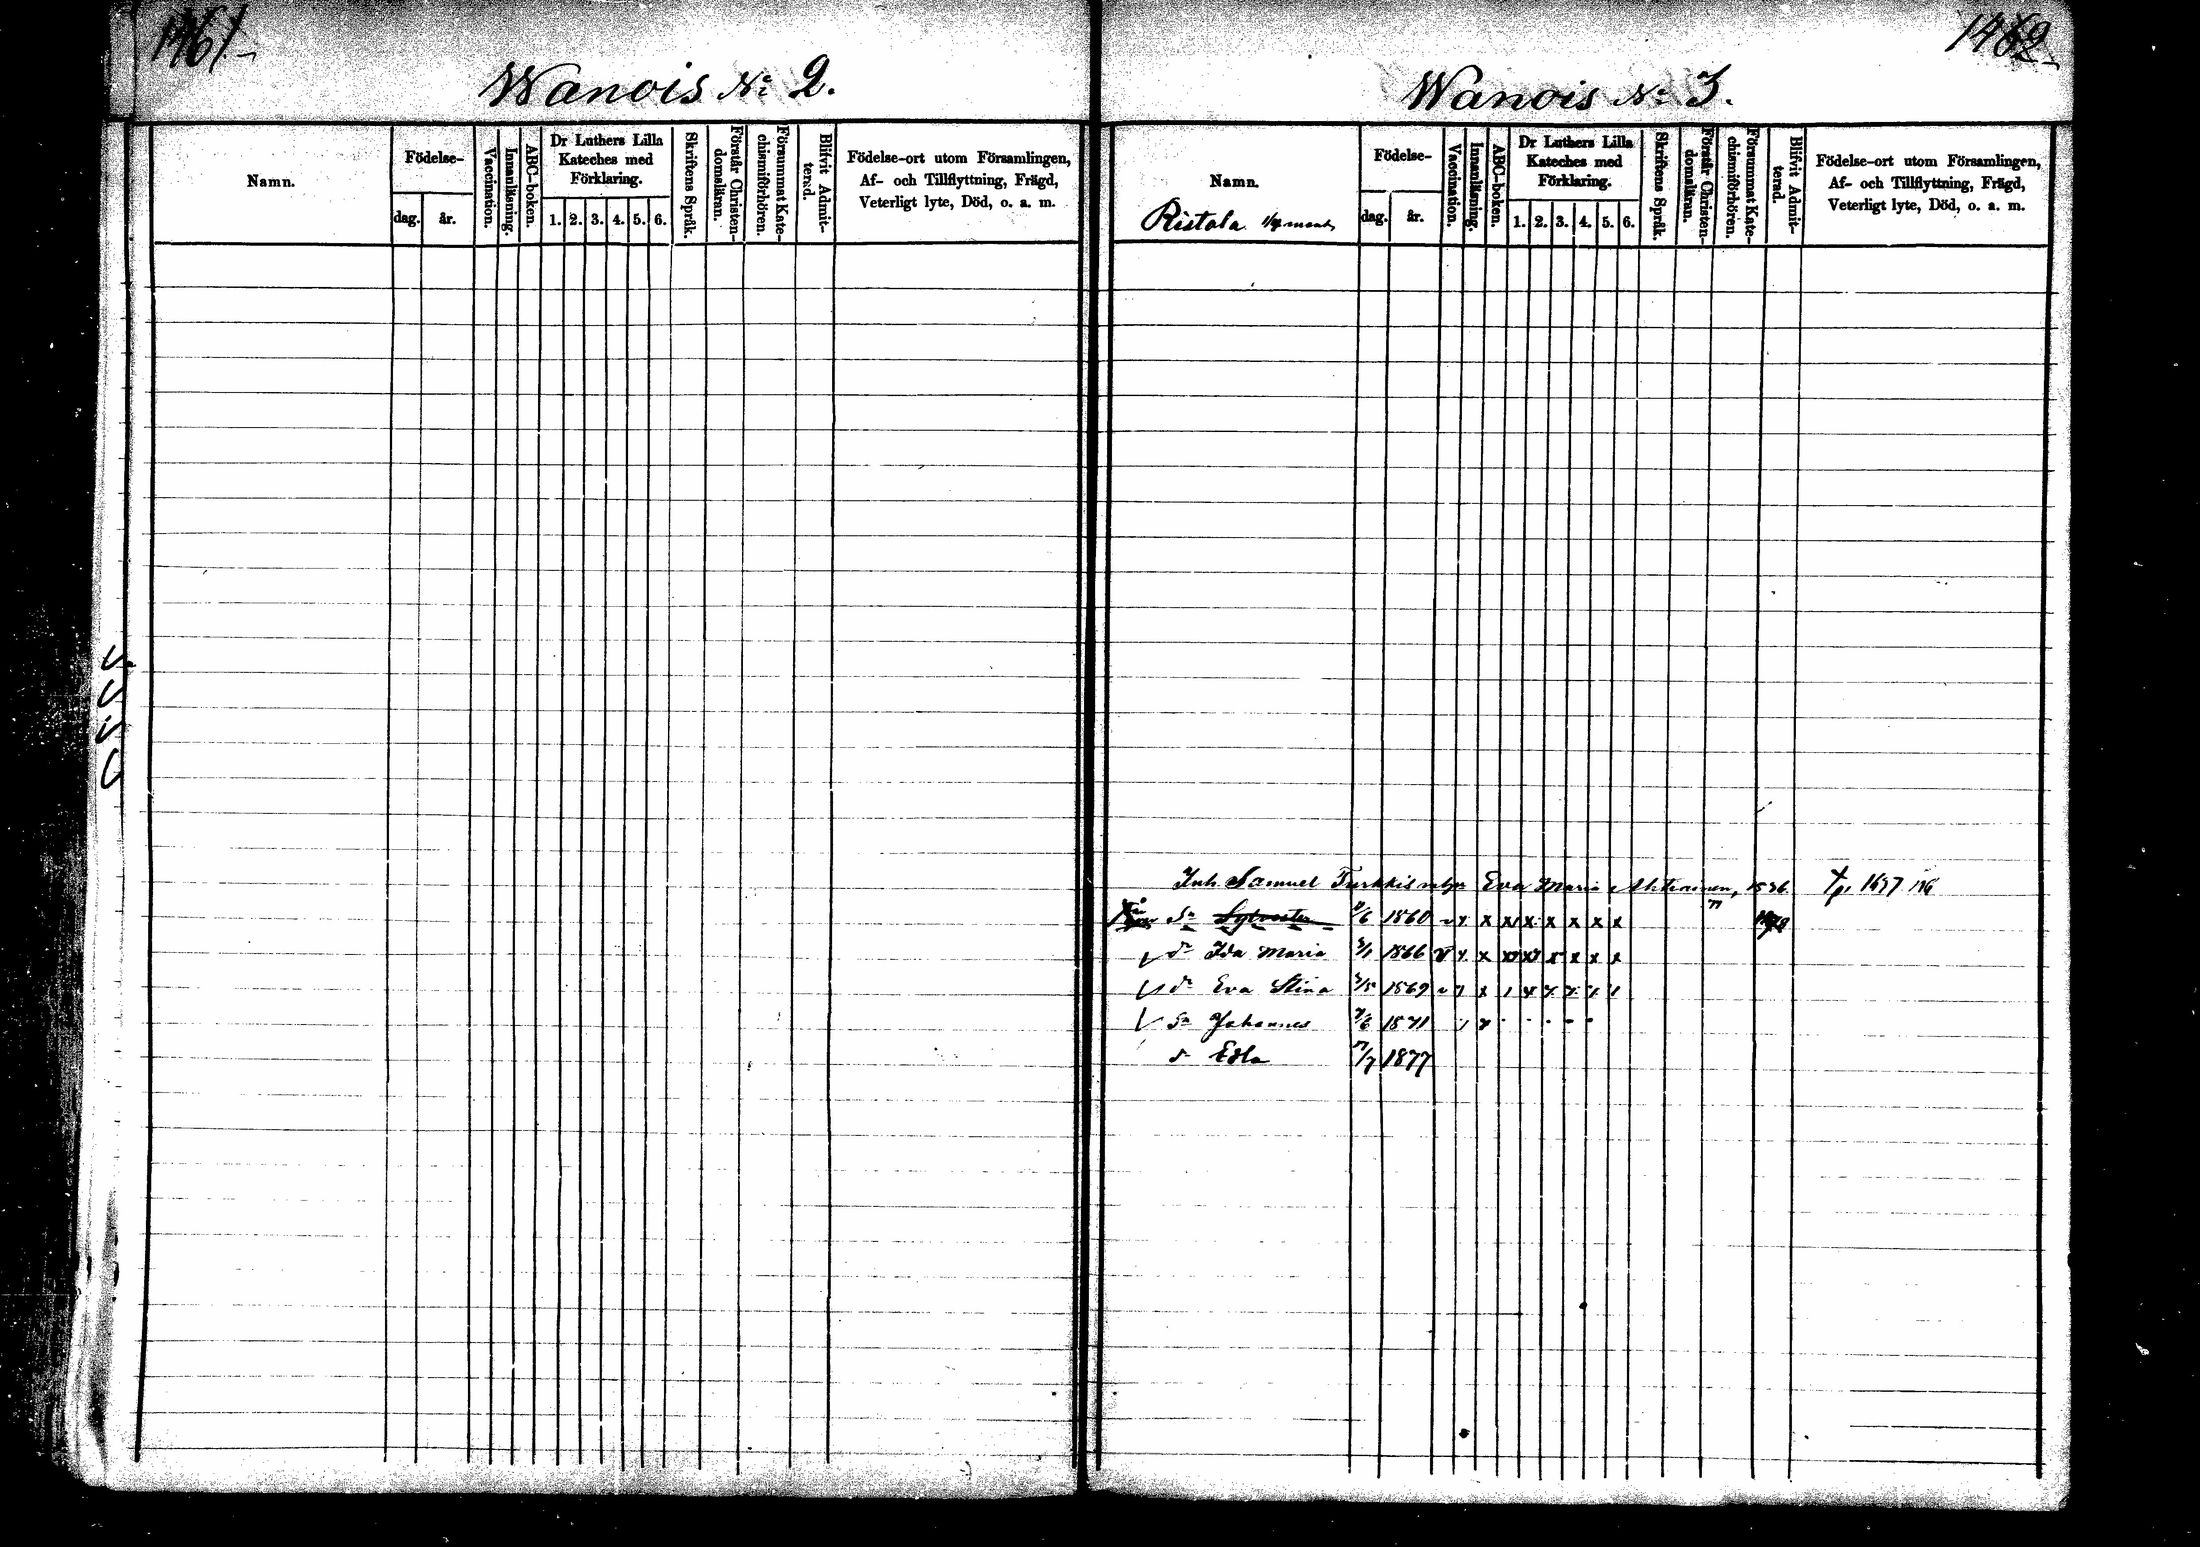 1461
Wanois No 2.
Namn.
Födelse-
dag.
år.
Vaccination.
Innanläsning.
ABC-boken.
Dr Luthers Lilla
Kateches med
Förklaring.
1. 2. 3. 4. 5. 6.
Skriftens Språk.
Förstår Christen-
domsläran.
Försummat Kate-
chismiförhören.
Blifvit Admit-
terad.
Födelse-ort utom Församlingen,
Af- och Tillflyttning, Frägd,
Veterligt lyte, Död, o. a. m.
1462
Wanois No 3.
Namn.
Ristola
Födelse-
dag.
år.
Vaccination.
Innanläsning.
ABC-boken.
Dr Luthers Lilla
Kateches med
Förklaring.
1. 2. 3. 4. 5. 6.
Skriftens Språk.
Förstår Christen-
domsläran.
Försummat Kate-
chismiförhören.
Blifvit Admit-
terad.
Födelse-ort utom Församlingen,
Af- och Tillflyttning, Frägd,
Veterligt lyte, Död, o. a. m.
Inh. Samuel Turkkis Eva Maria Ahtiainen, 1836
Sn Sylvester 1860 x x x x x x x
dr Ida Maria 1866 x x x x x x
dr Eva Stina 1869
Sn Johannes 1871
dr Edla 1877